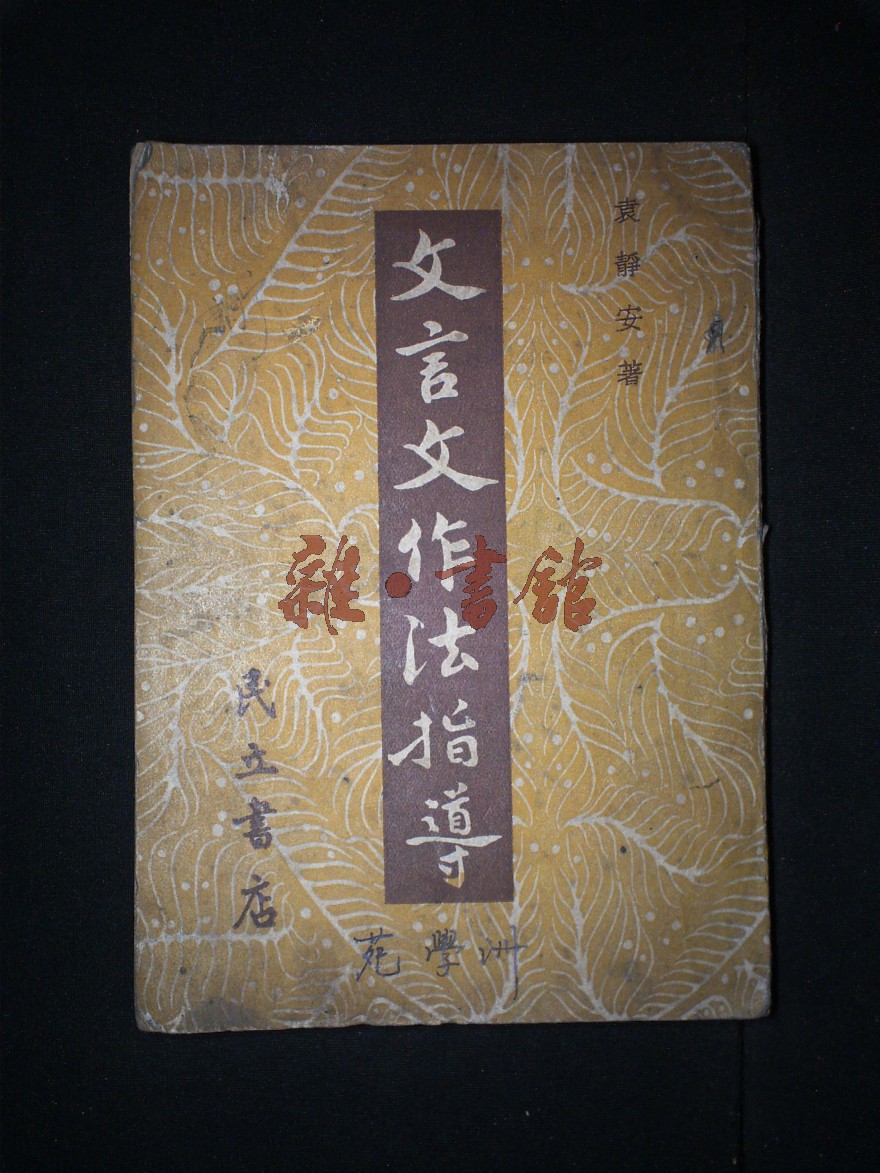 袁靜安著
文言文作法指導
民立書店
雜·書館